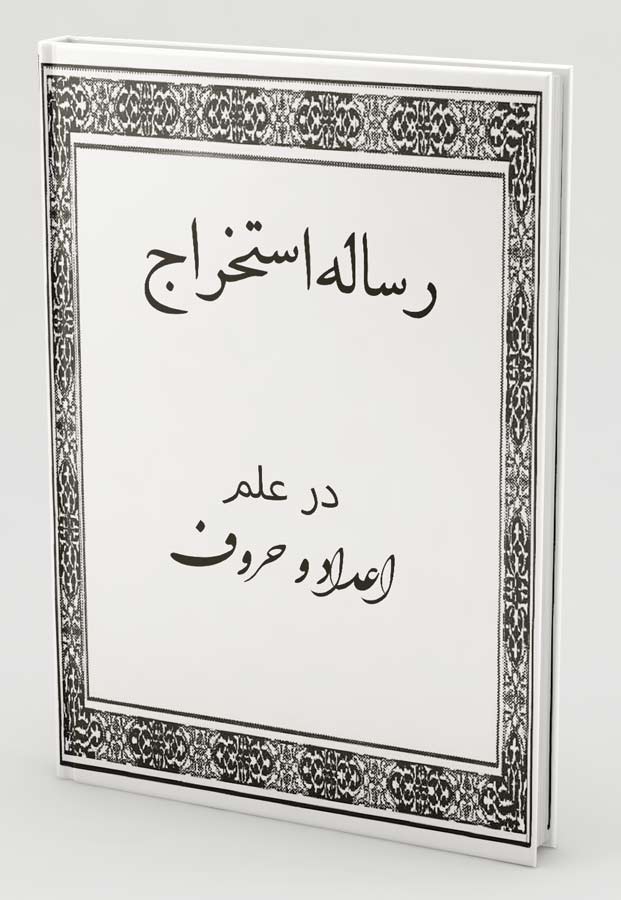 رساله استخراج
در علم
اعداد و حروف